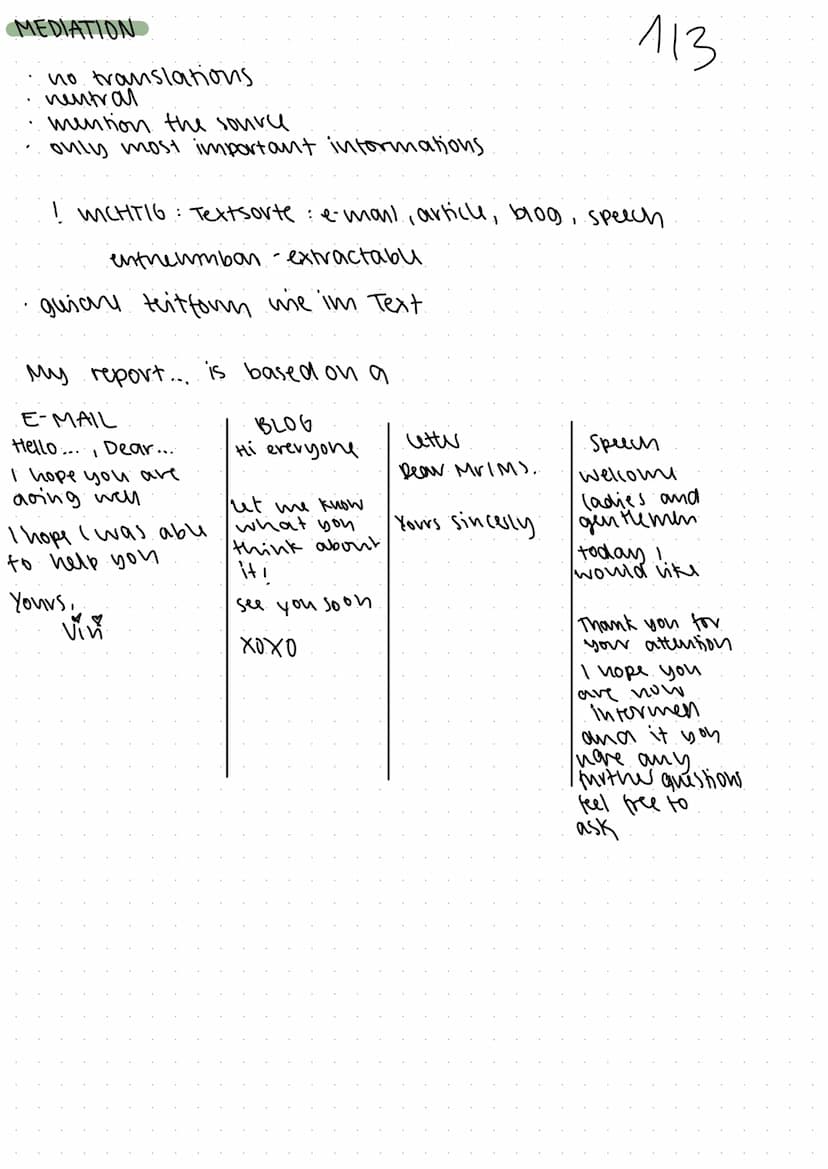 MEDIATION
1/3
· no translations
· neutral
· mention the source
· only most important informations
! WICHTIG : Textsorte : e-mail, article, blog, speech
entnehmbar - extractable
· gleiche Zeitform wie im Text
My report... is based on a
E-MAIL
Hello..., Dear...
I hope you are
doing well
I hope I was able
to help you
Yours,
Vivi
BLOG
Hi everyone
Let me know
what you
think about
it!
see you soon
XOXO
Letter
Dear Mr/Ms.
Yours sincerly
Speech
Welcome
ladies and
gentlemen
today I
would like
Thank you for
your attention
I hope you
are now
informed
and if you
have any
further questions
feel free to
ask